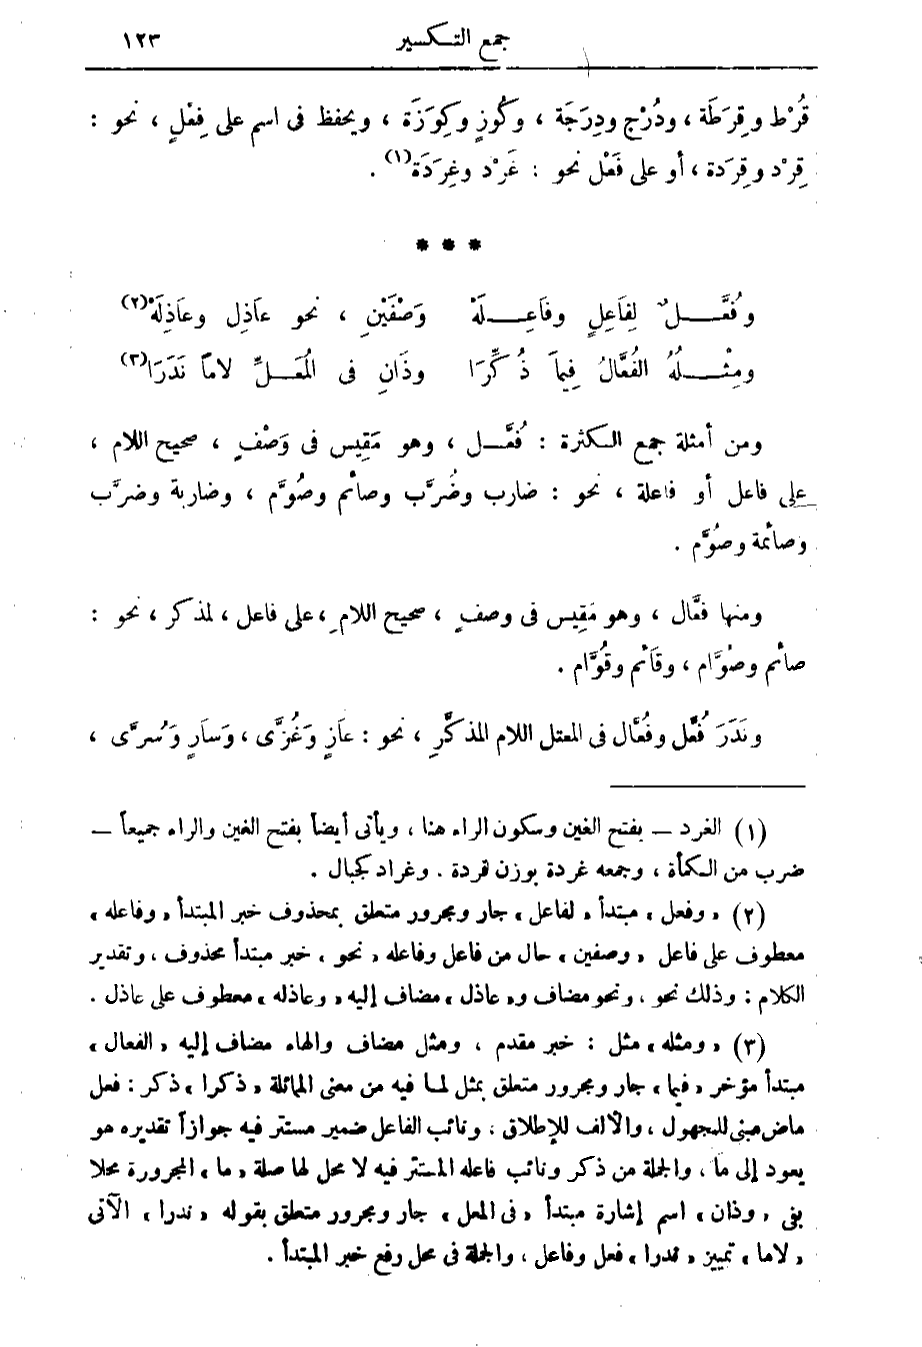 جمع التكسير ١٢٣
قُرْط وقِرَطَة ، ودُرْج ودِرَجَة ، وكُوزٍ وكِوَزَة ، ويحفظ فى اسم على فِعْلٍ ، نحو :
قِرْد وقِرَدة ، أو على فَعْل نحو : غَرْد وغِرَدَة(١) .
* * *
وفُعَّلٌ لِفَاعِلٍ وفَاعِلَهْ وَصْفَيْنِ ، نحو عَاذِل وعاَذِلَهْ(٢)
ومِثْلُهُ الفُعَّالُ فِيمَا ذُكِّرَا وذَانِ فى المُعَلِّ لاماً نَدَرَا(٣)
ومن أمثلة جمع الكثرة : فُعَّل ، وهو مَقِيس فى وَصْفٍ ، صحيح اللام ،
على فاعل أو فاعلة ، نحو : ضارب وضُرَّب وصائم وصُوَّم ، وضاربة وضرَّب
وصائمة وصُوَّم .
ومنها فعَّال ، وهو مَقِيس فى وصفٍ ، صحيح اللامِ ، على فاعل ، لمذكر ، نحو :
صائم وصُوَّام ، وقَائم وقُوَّام .
ونَدَرَ فُعَّل وفُعَّال فى المعتل اللام المذكَّرِ ، نحو : غَازٍ وَغُزًّى ، وَسَارٍ وَسُرًّى ،
(١) الغرد — بفتح الغين وسكون الراء هنا ، ويأتى أيضاً بفتح الغين والراء جميعاً —
ضرب من الكمأة ، وجمعه غردة بوزن قردة . وغراد كجبال .
(٢) « وفعل » مبتدأ « لفاعل » جار ومجرور متعلق بمحذوف خبر المبتدأ « وفاعله »
معطوف على فاعل « وصفين » حال من فاعل وفاعله « نحو » خبر مبتدأ محذوف ، وتقدير
الكلام : وذلك نحو ، ونحو مضاف و « عاذل » مضاف إليه « وعاذله » معطوف على عاذل .
(٣) « ومثله » مثل : خبر مقدم ، ومثل مضاف والهاء مضاف إليه « الفعال »
مبتدأ مؤخر « فيما » جار ومجرور متعلق بمثل لما فيه من معنى المماثلة « ذكرا » ذكر : فعل
ماض مبنى للمجهول ، والألف للإطلاق ، ونائب الفاعل ضمير مستتر فيه جوازاً تقديره هو
يعود إلى ما ، والجملة من ذكر ونائب فاعله المستتر فيه لا محل لها صلة « ما » المجرورة محلا
بفى « وذان » اسم إشارة مبتدأ « فى المعل » جار ومجرور متعلق بقوله « ندرا » الآتى
« لاما » تمييز « ندرا » فعل وفاعل ، والجملة فى محل رفع خبر المبتدأ .